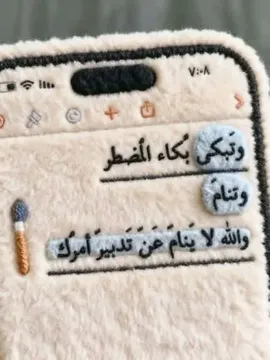 ٧:٠٨
وتَبكي بُكاء المُضطر
وتنامَ
والله لا يَنامَ عَنَ تَدبيرَ أمرُك